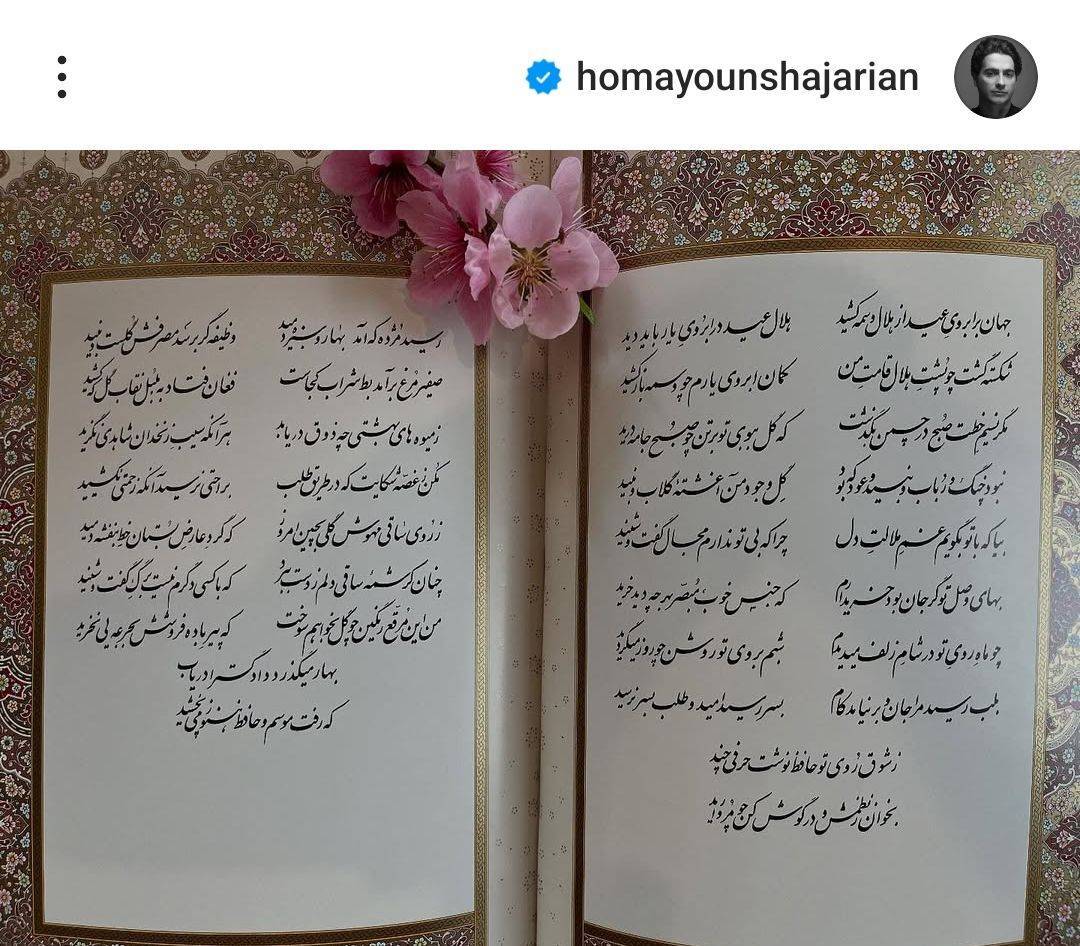 homayounshajarian
جهان برابروی عید از هلال وسمه کشید هلال عید در ابروی یار باید دید
شکسته گشت چو پشت هلال قامت من کمان ابروی یارم چو وسمه بازکشید
مگر نسیم خطت صبح در چمن بگذشت که گل ببوی تو بر تن چو صبح جامه درید
نبود چنگ و رباب و نبید و عود که بود گل وجود من آغشته گلاب و نبید
بیا که با تو بگویم غم ملالت دل چرا که بی تو ندارم مجال گفت و شنید
بهای وصل تو گر جان بود خریدارم که جنس خوب مبصر بهر چه دید خرید
چو ماه روی تو در شام زلف میدیدم شبم بروی تو روشن چو روز میگردید
بلب رسید مرا جان و برنیامد کام بسر رسید امید و طلب بسر نرسید
ز شوق روی تو حافظ نوشت حرفی چند
بخوان ز نظمش و در گوش کن چو مروارید
رسید مژده که آمد بهار و سبزه دمید وظیفه گر برسد مصرفش گلست و نبید
صفیر مرغ برآمد بط شراب کجاست فغان فتاد به بلبل نقاب گل که کشید
ز میوه‌های بهشتی چه ذوق دریابد هر آنکه سیب زنخدان شاهدی نگزید
مکن ز غصه شکایت که در طریق طلب براحتی نرسید آنکه زحمتی نکشید
ز روی ساقی مهوش گلی بچین امروز که گرد عارض بستان خط بنفشه دمید
چنان کرشمه ساقی دلم ز دست ببرد که با کسی دگرم نیست برگ گفت و شنید
من این مرقع رنگین چو گل بخواهم سوخت که پیر باده فروشش بجرعه‌یی نخرید
بهار میگذرد دادگسترا دریاب
که رفت موسم و حافظ هنوز می نچشید